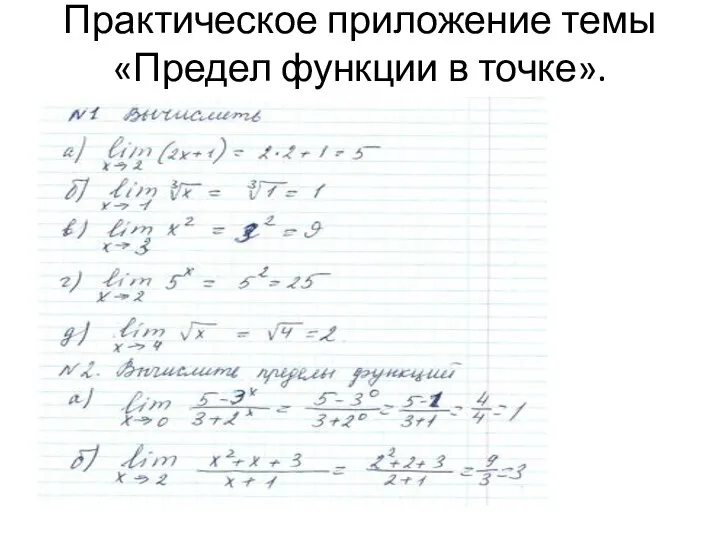 Практическое приложение темы
«Предел функции в точке».
N1 Вычислить
а) lim x→2 (2x+1) = 2·2+1=5
б) lim x→1 ∛x = ∛1 = 1
в) lim x→3 x² = 3² = 9
г) lim x→2 5ˣ = 5² = 25
д) lim x→4 √x = √4 = 2.
N2. Вычислите пределы функций
а) lim x→0 (5-3ˣ)/(3+2ˣ) = (5-3⁰)/(3+2⁰) = (5-1)/(3+1) = 4/4 = 1
б) lim x→2 (x²+x+3)/(x+1) = (2²+2+3)/(2+1) = 9/3 = 3